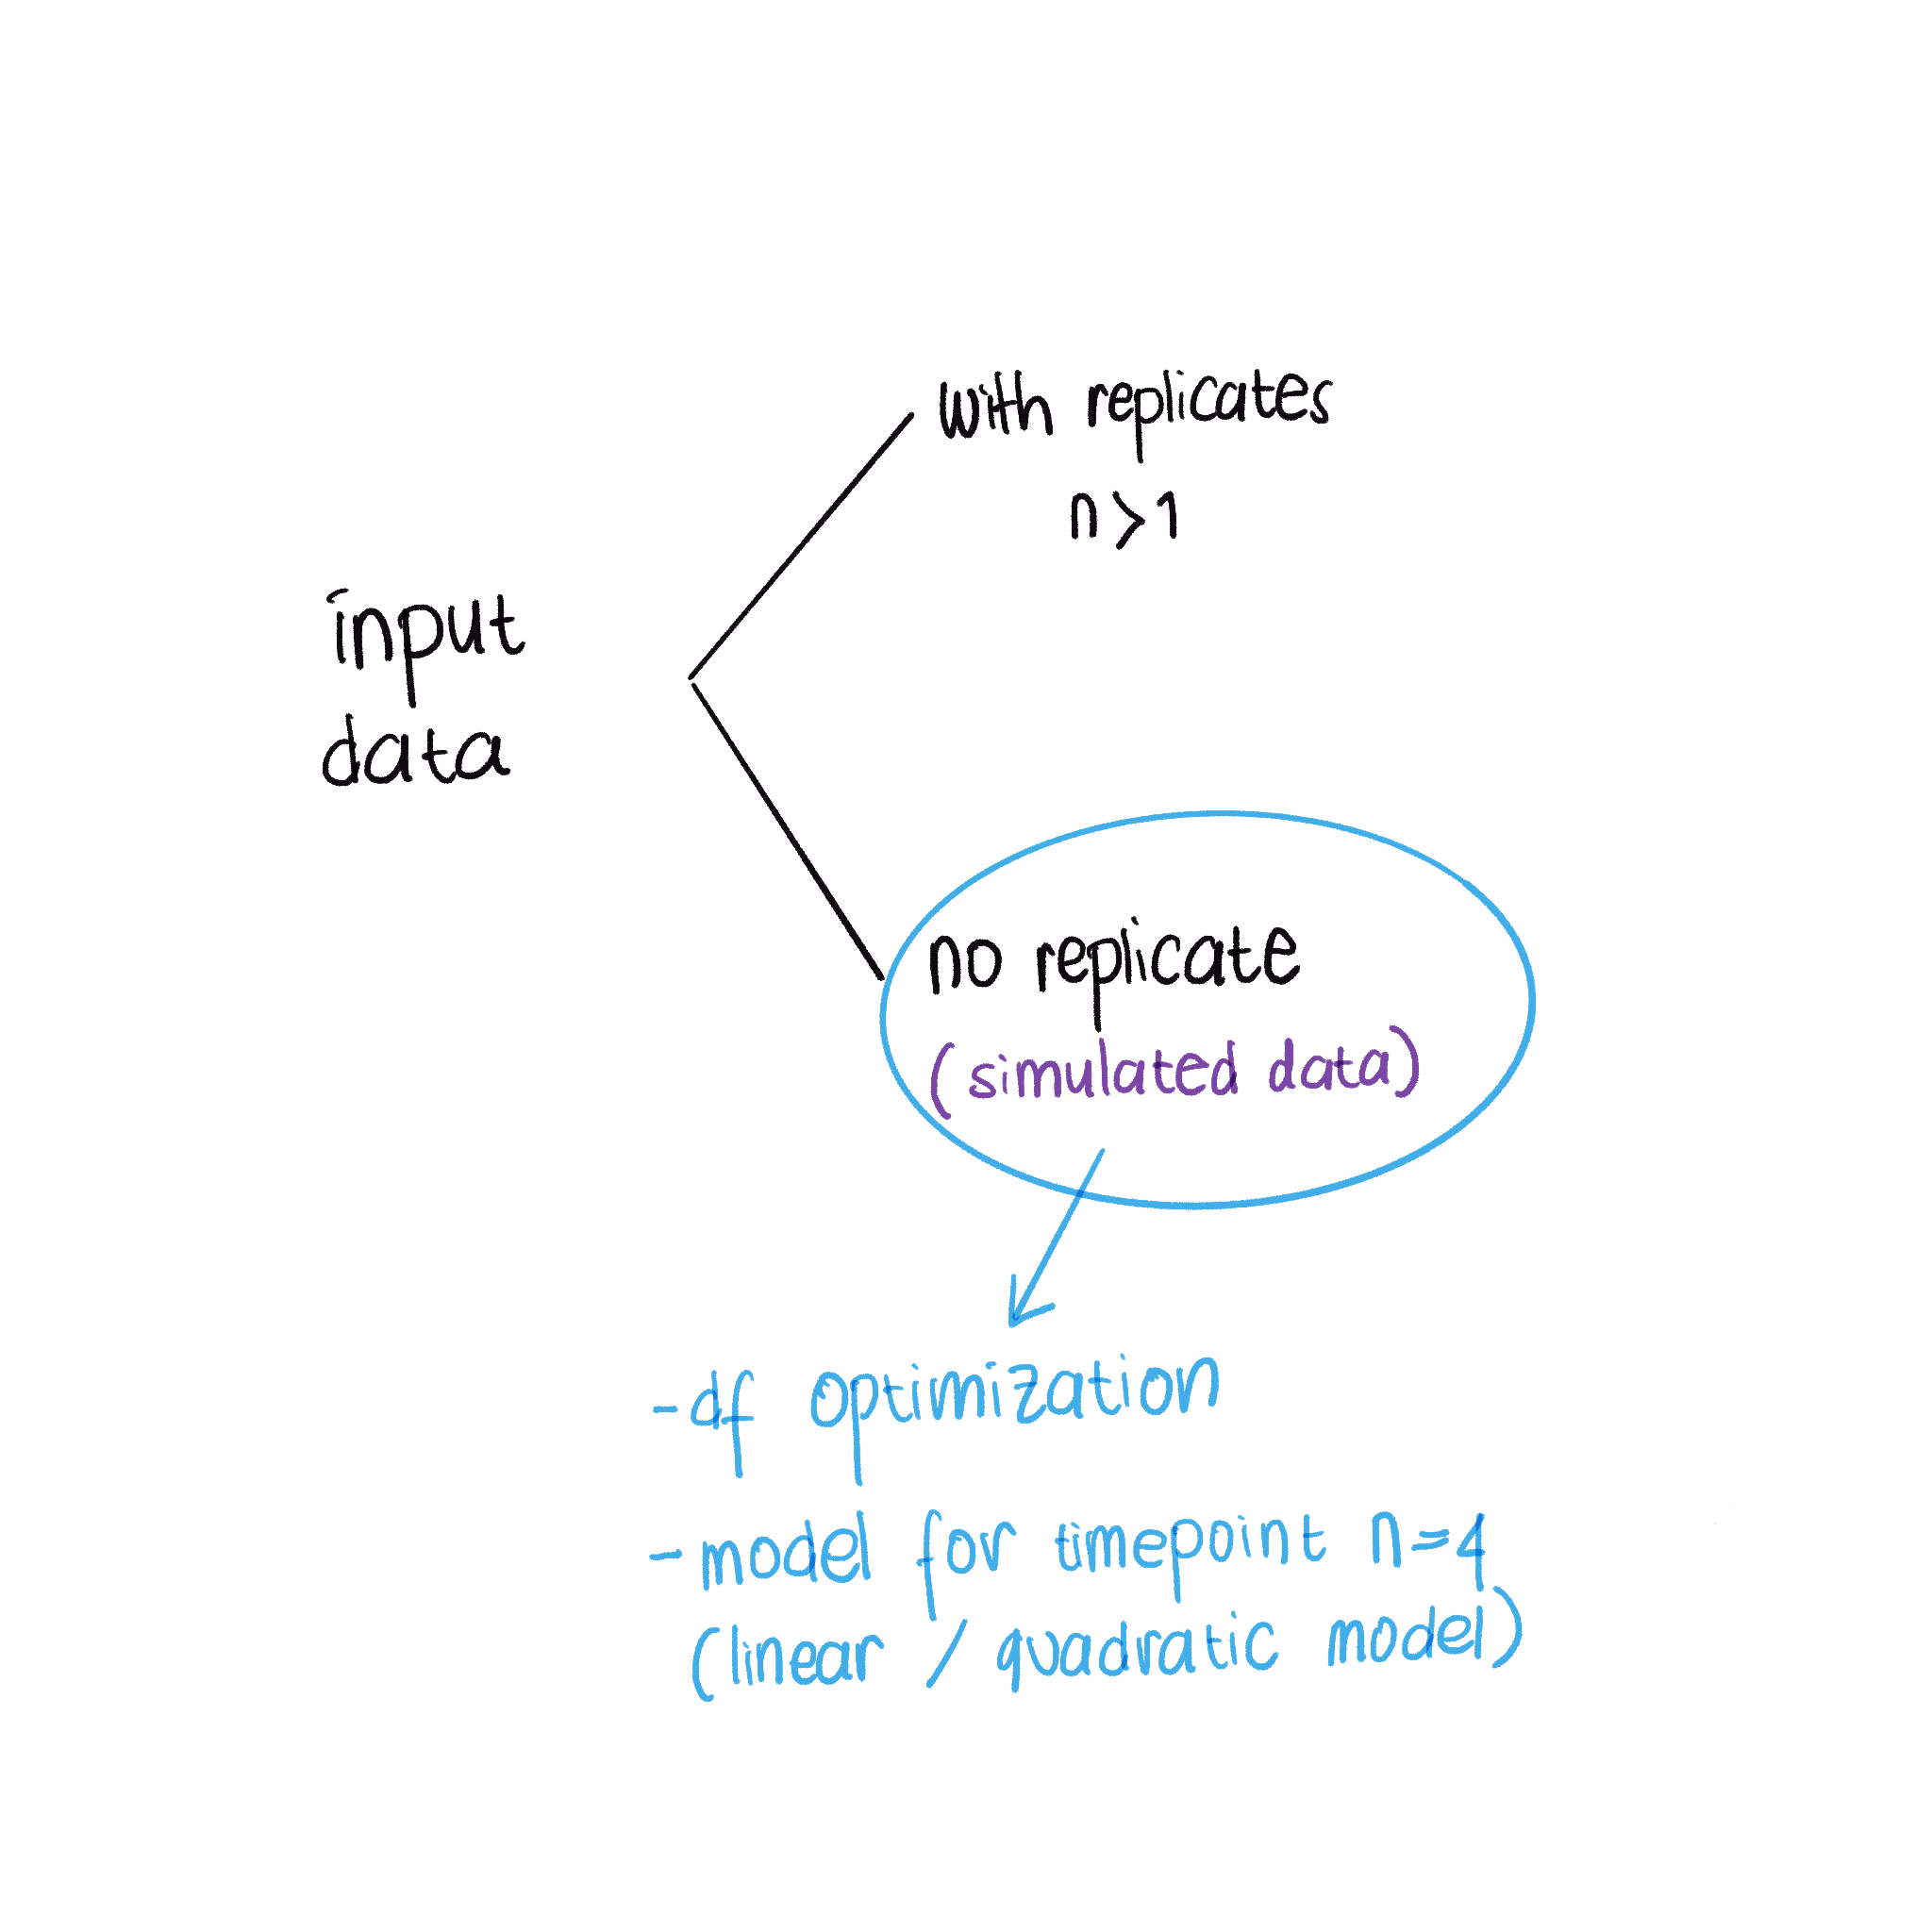 with replicates
n>1
input
data
no replicate
(simulated data)
-df optimization
-model for timepoint n=4
(linear / quadratic model)